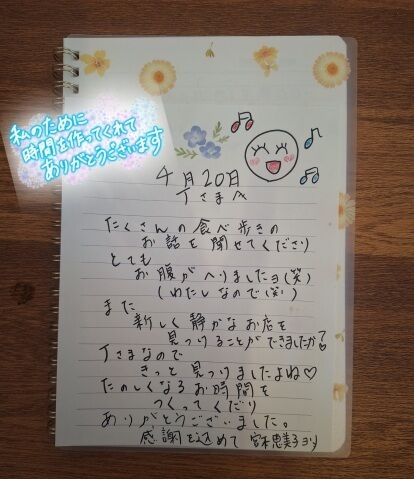 私のために
時間を作ってくれて
ありがとうございます
4月20日
Tさまへ
たくさんの食べ歩きの
お話を聞せてくださり
とても
お腹がへりましたヨ(笑)
(わたしなので(笑))
また
新しく静かなお店を
見つけることができましたか?
Tさまなので
きっと見つけりましたよね♡
たのしくなるお時間を
つくってくだり
ありがとうございました。
感謝を込めて 宮本恵美子より